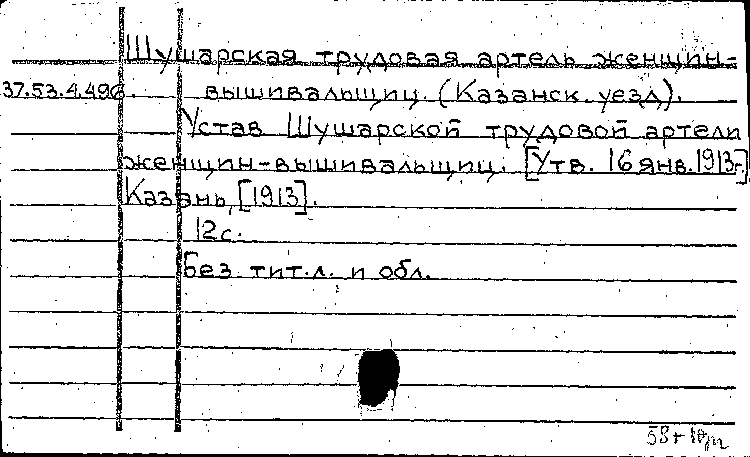 Шушарская трудовая артель женщин-
37.53.4.496. вышивальщиц. (Казанск. уезд).
Устав Шушарской трудовой артели
женщин-вышивальщиц. [Утв. 16 янв. 1913 г.]
Казань, [1913].
12 с.
Без тит. л. и обл.